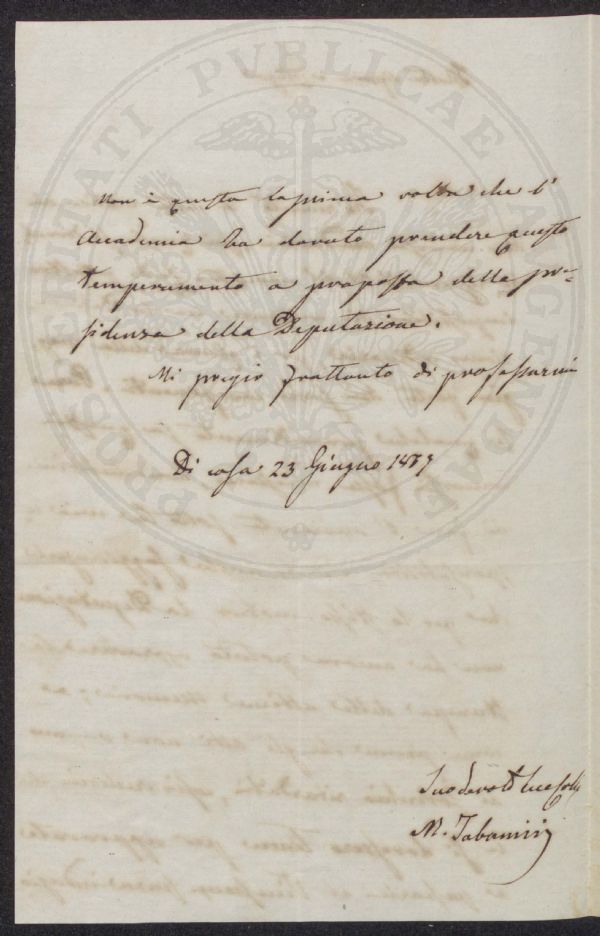 PROSPERITATI PVBLICAE AVGENDAE
non è questa la prima volta che l'
Accademia ha dovuto prendere questo
temperamento a proposta della pre=
sidenza della Deputazione.
Mi pregio frattanto di professarmi
Di casa 23 Giugno
Suo devot
M. Tabarrini